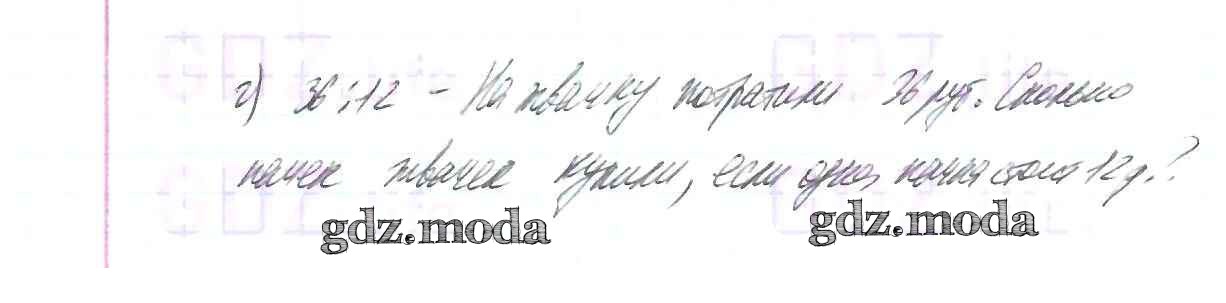 г) 36:12 – На жвачку потратили 36 руб. Сколько
пачек жвачек купили, если одна пачка стоит 12 р.?
gdz.moda gdz.moda